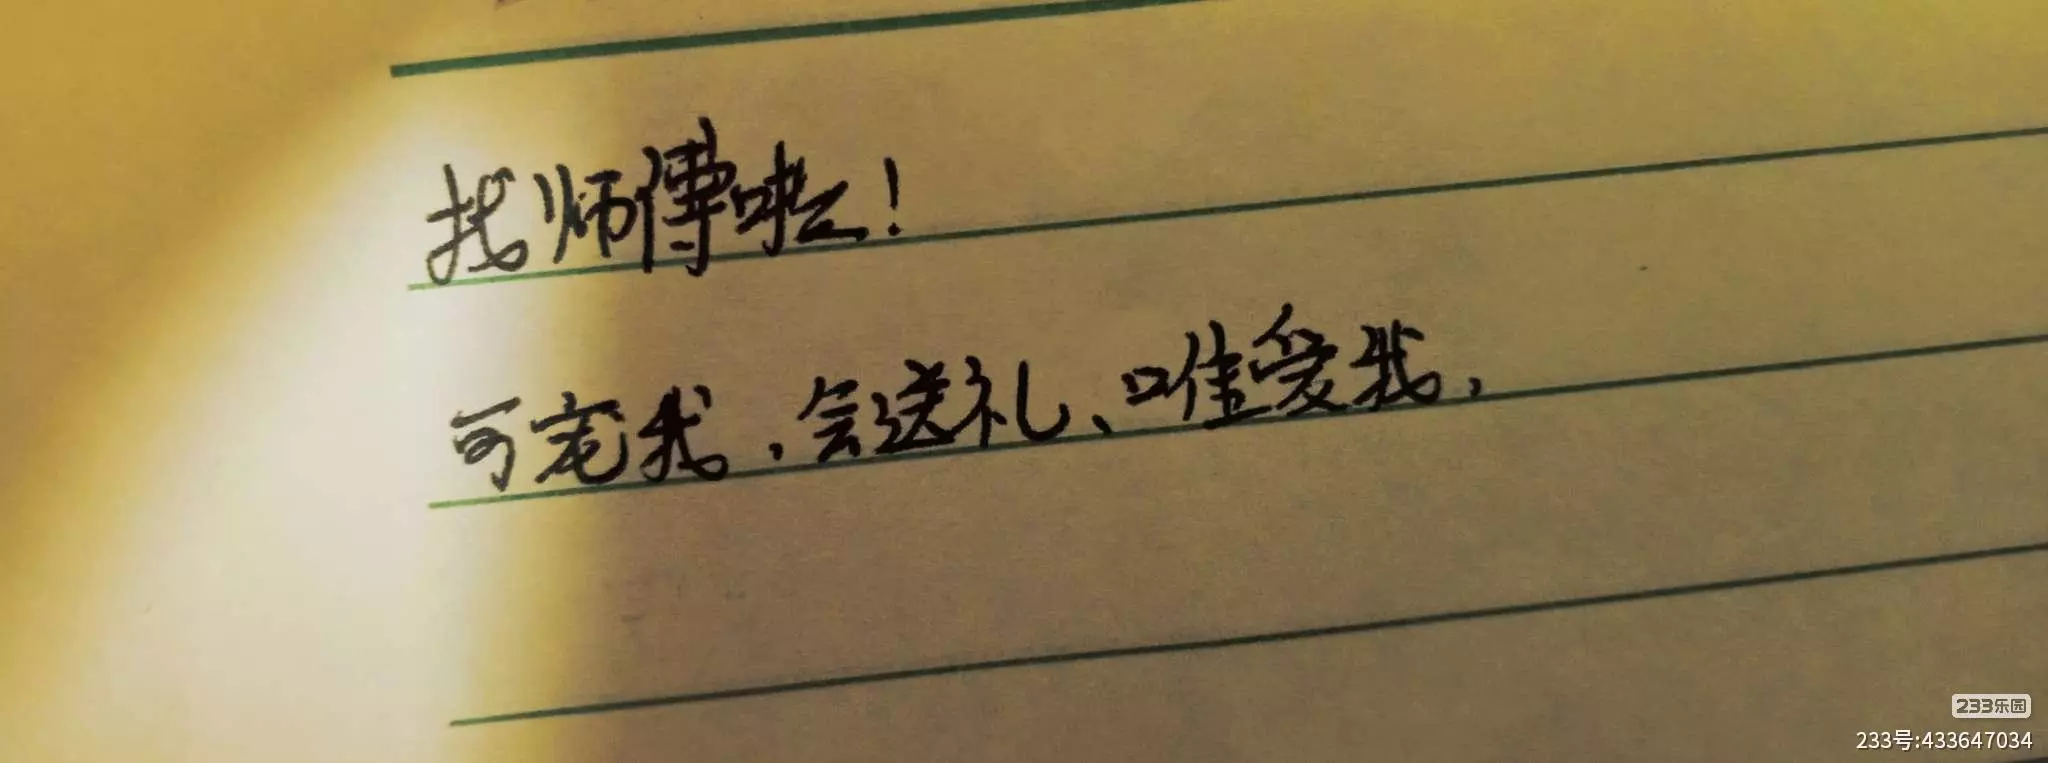 找师傅啦！
可宠我，会送礼、唯爱我，
233乐园
233号:433647034